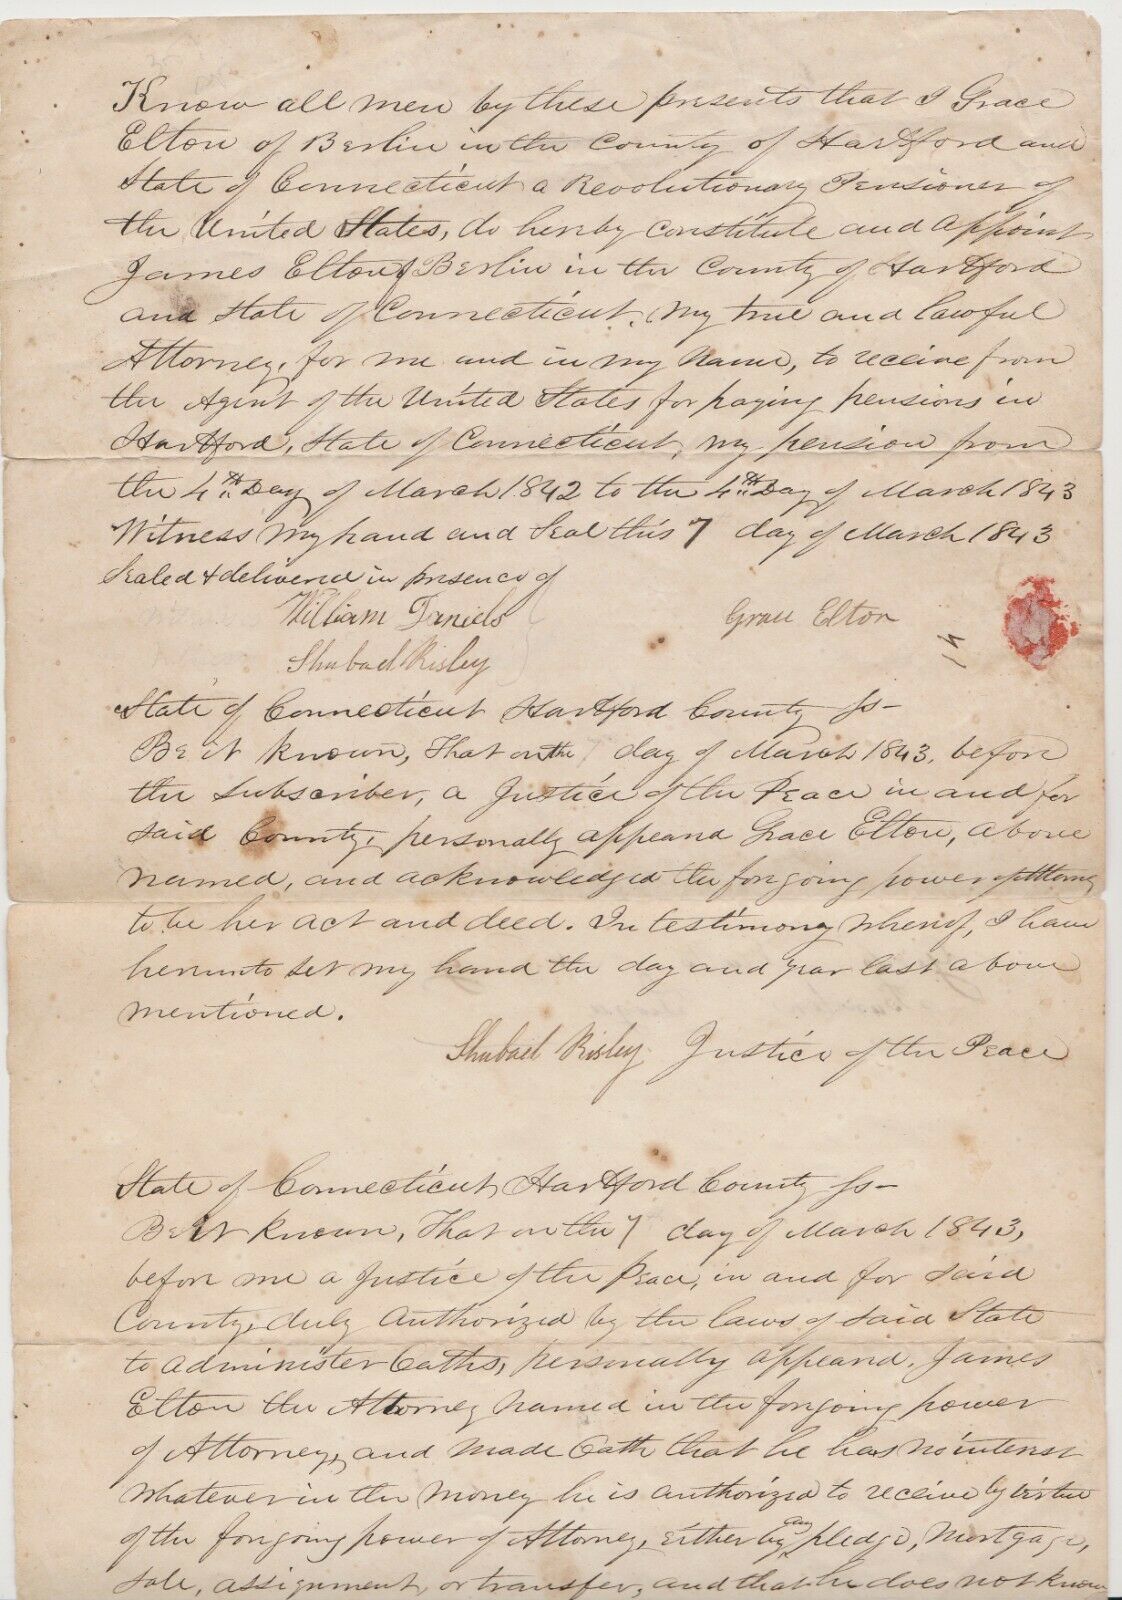 Know all men by these presents that I Grace
Elton of Berlin in the County of Hartford and
State of Connecticut a Revolutionary Pensioner of
the United States, do hereby constitute and appoint
James Elton of Berlin in the County of Hartford
and State of Connecticut, my true and lawful
Attorney, for me and in my name, to receive from
the Agent of the United States for paying pensions in
Hartford, State of Connecticut, my pension from
the 4th Day of March 1842 to the 4th Day of March 1843
Witness my hand and Seal this 7 day of March 1843
Sealed & delivered in presence of
William Daniels
Grace Elton
Shubael Risley
State of Connecticut Hartford County Ss-
Be it known, That on the 7 day of March 1843, before
the subscriber, a Justice of the Peace in and for
said County, personally appeard Grace Elton, above
named, and acknowledged the forgoing power of Attorney
to be her act and deed. In testimony whereof, I have
hereunto set my hand the day and year last above
mentioned.
Shubael Risley Justice of the Peace
State of Connecticut, Hartford County Ss-
Be it known, That on the 7 day of March 1843,
before me a Justice of the Peace, in and for said
County, duly authorized by the laws of said State
to administer Oaths, personally appeard, James
Elton the Attorney named in the forgoing power
of Attorney, and made Oath that he has no interest
whatever in the money he is authorized to receive by virtue
of the forgoing power of Attorney, either by any pledge, mortgage,
sale, assignment, or transfer, and that he does not know